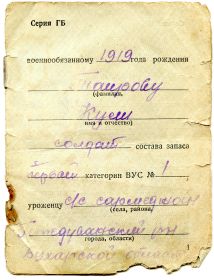 Серия ГБ
военнообязанному 1919 года рождения
Таирову
(фамилия,
Кули
имя и отчество)
солдат состава запаса
первой категории ВУС № 1
уроженцу с/с
(села, района,
Гиждуванский р-н
города, области)
Бухарской области
1